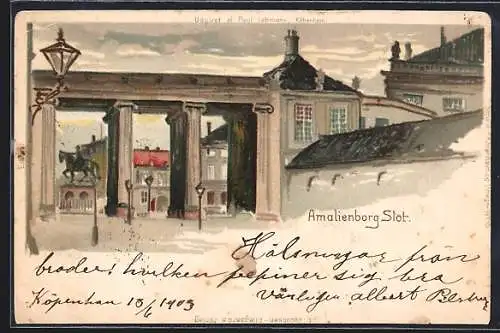 Udgivet af Paul Lehmann, Kobenhavn.
Amalienborg Slot.
Hälsningar från
broder, hvilken pepiner sig bra
vänligen Albert
Köpenhamn 15/6 1903